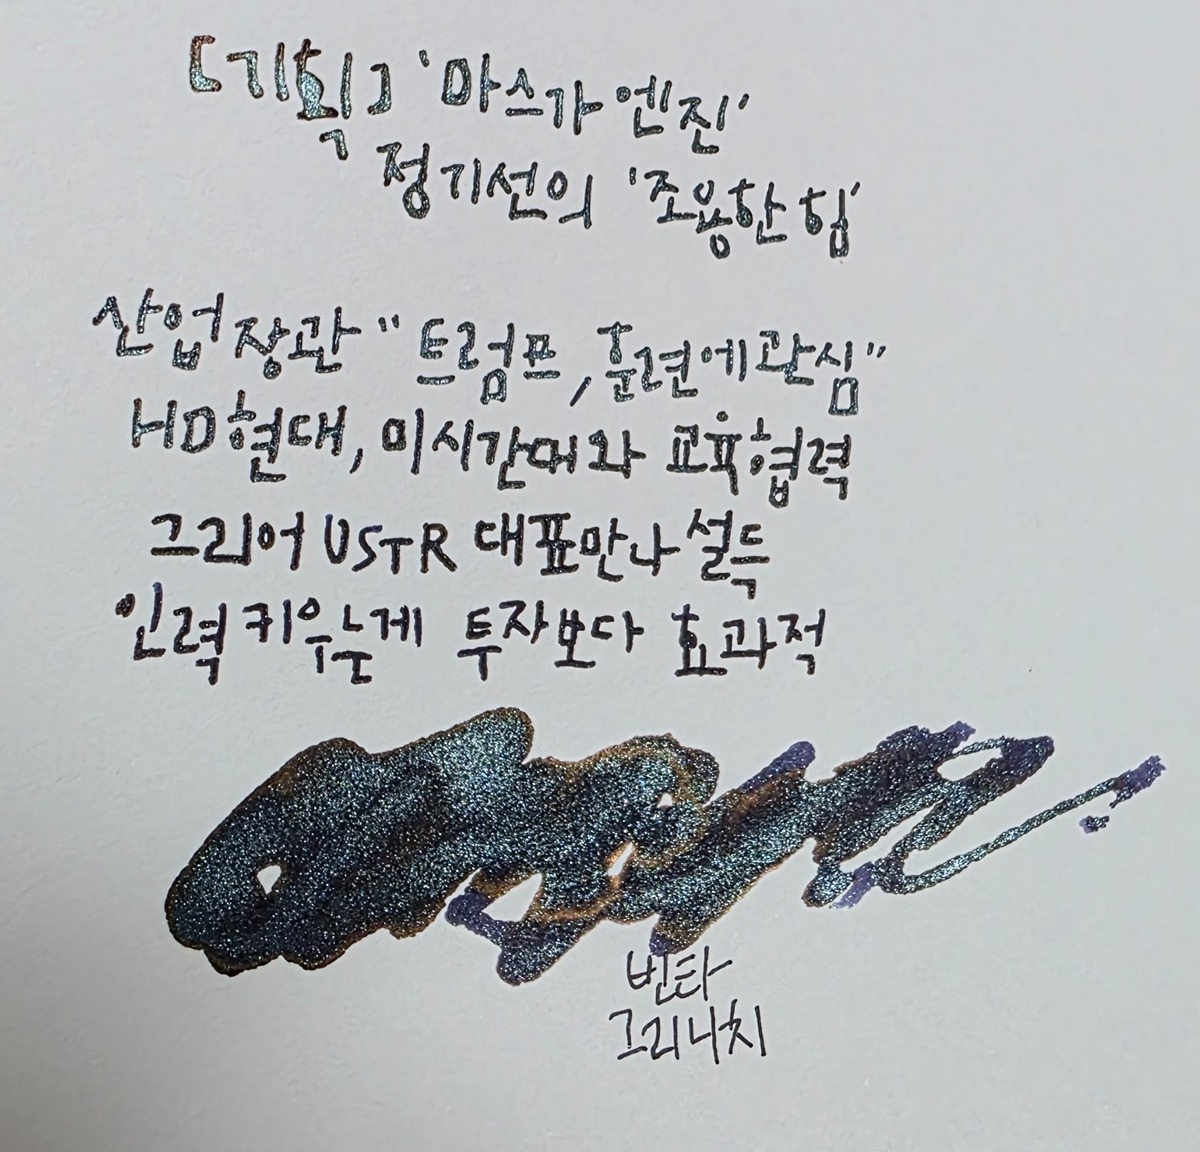 [기획] '마스가 엔진'
정기선의 '조용한 힘'
산업장관 "트럼프, 훈련에 관심"
HD현대, 미시간대와 교육협력
그리어 USTR 대표만나 설득
인력 키우는게 투자보다 효과적
빈타
그리니치